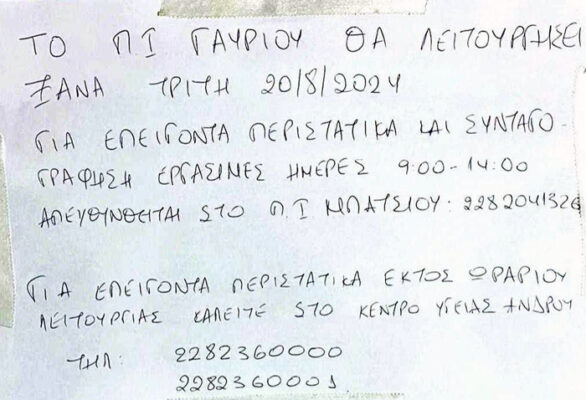 ΤΟ Π.Ι ΓΑΥΡΙΟΥ ΘΑ ΛΕΙΤΟΥΡΓΗΣΕΙ
ΞΑΝΑ ΤΡΙΤΗ 20/8/2024
ΓΙΑ ΕΠΕΙΓΟΝΤΑ ΠΕΡΙΣΤΑΤΙΚΑ ΚΑΙ ΣΥΝΤΑΓΟ-
ΓΡΑΦΗΣΗ ΕΡΓΑΣΙΜΕΣ ΗΜΕΡΕΣ 9:00-14:00
ΑΠΕΥΘΥΝΘΕΙΤΑΙ ΣΤΟ Π.Ι ΜΠΑΤΣΙΟΥ: 2282041326
ΓΙΑ ΕΠΕΙΓΟΝΤΑ ΠΕΡΙΣΤΑΤΙΚΑ ΕΚΤΟΣ ΩΡΑΡΙΟΥ
ΛΕΙΤΟΥΡΓΙΑΣ ΚΑΛΕΙΤΕ ΣΤΟ ΚΕΝΤΡΟ ΥΓΕΙΑΣ ΑΝΔΡΟΥ
ΤΗΛ: 2282360000
2282360001